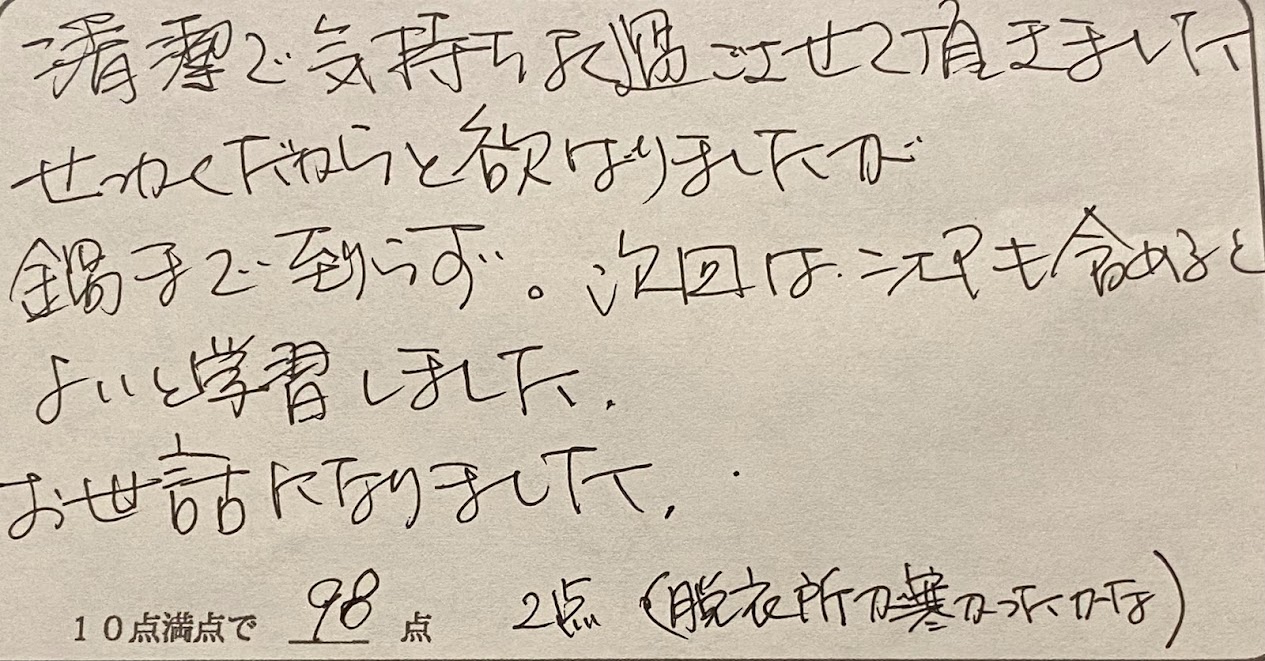 清潔で気持ちよく過ごさせて頂きました
せっかくだからと欲ばりましたが
鍋まで到らず。次回は、そこも含めると
よいと学習しました。
お世話になりました。
10点満点で 98 点 2点(脱衣所が寒かったかな)